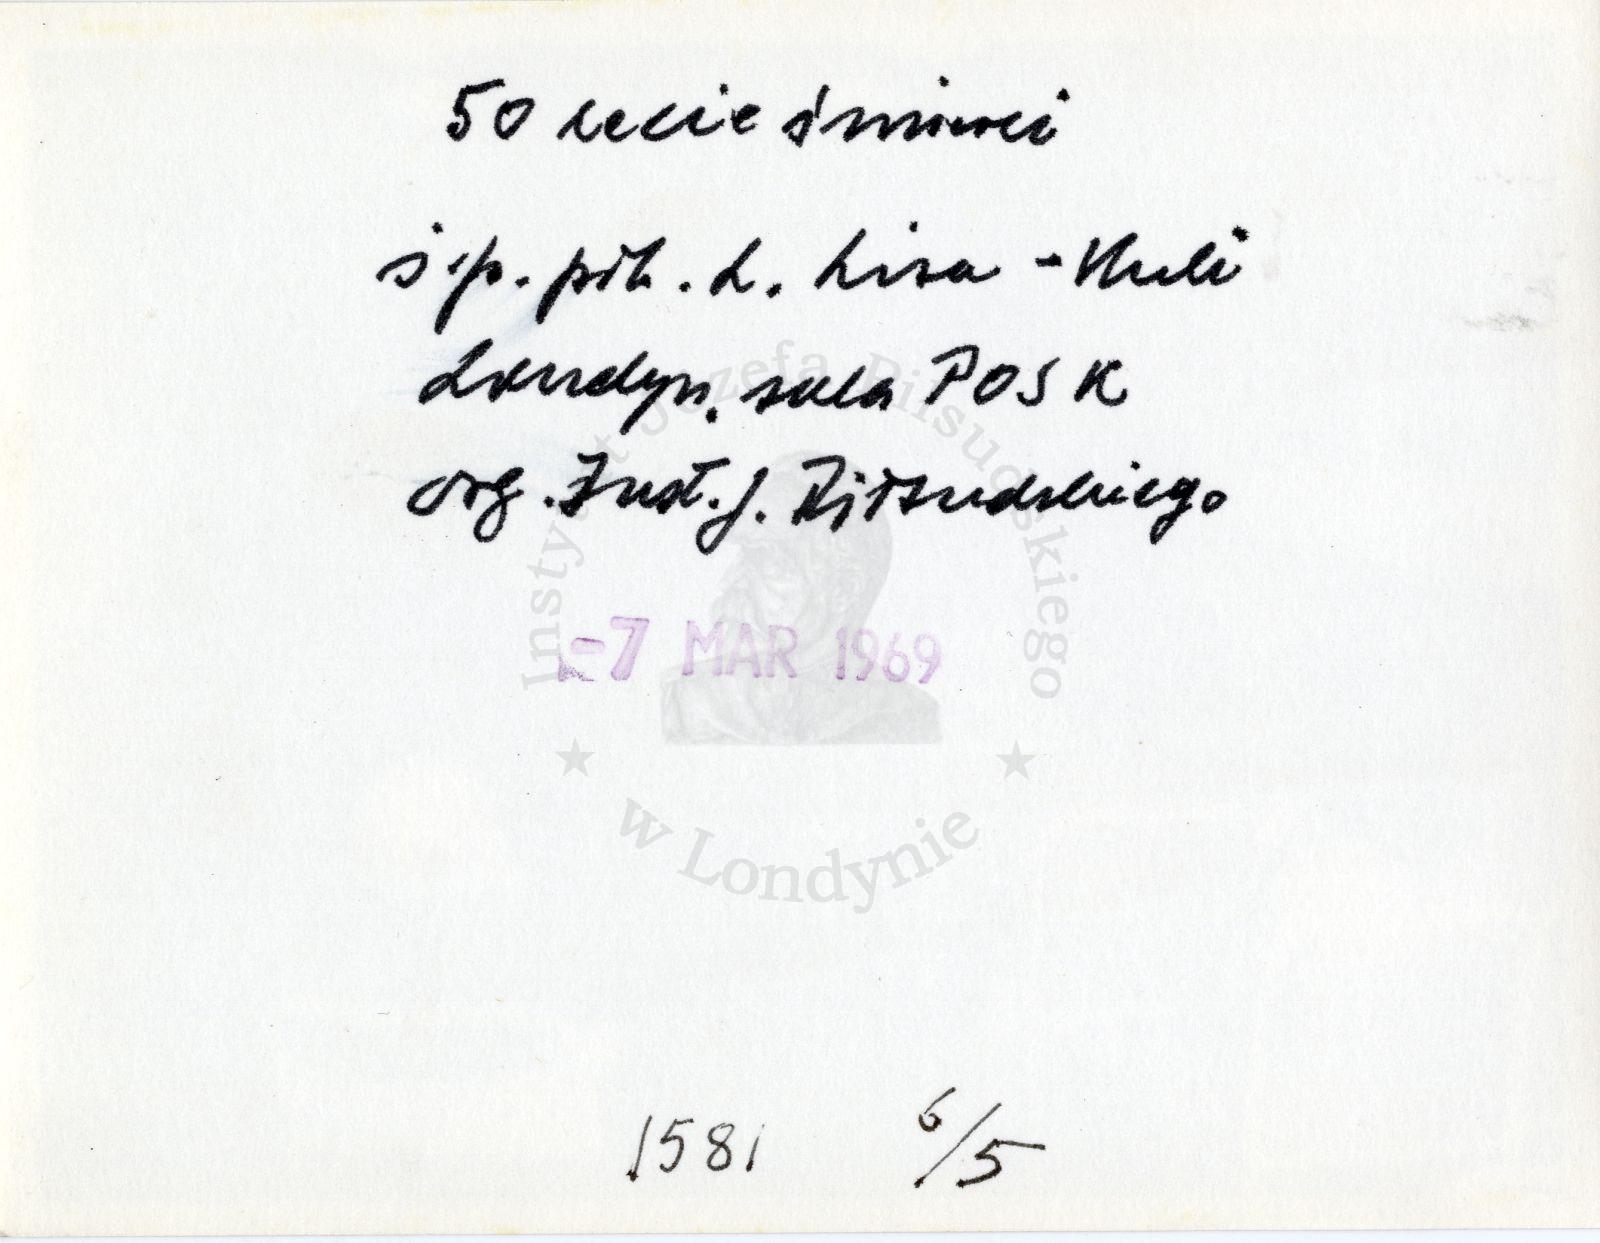 50 lecie śmierci
ś.p. płk. L. Lisa-Kuli
Londyn, sala POSK
org. Inst. J. Piłsudskiego
-7 MAR 1969
Instytut Józefa Piłsudskiego
★ ★
w Londynie
1581 6/5